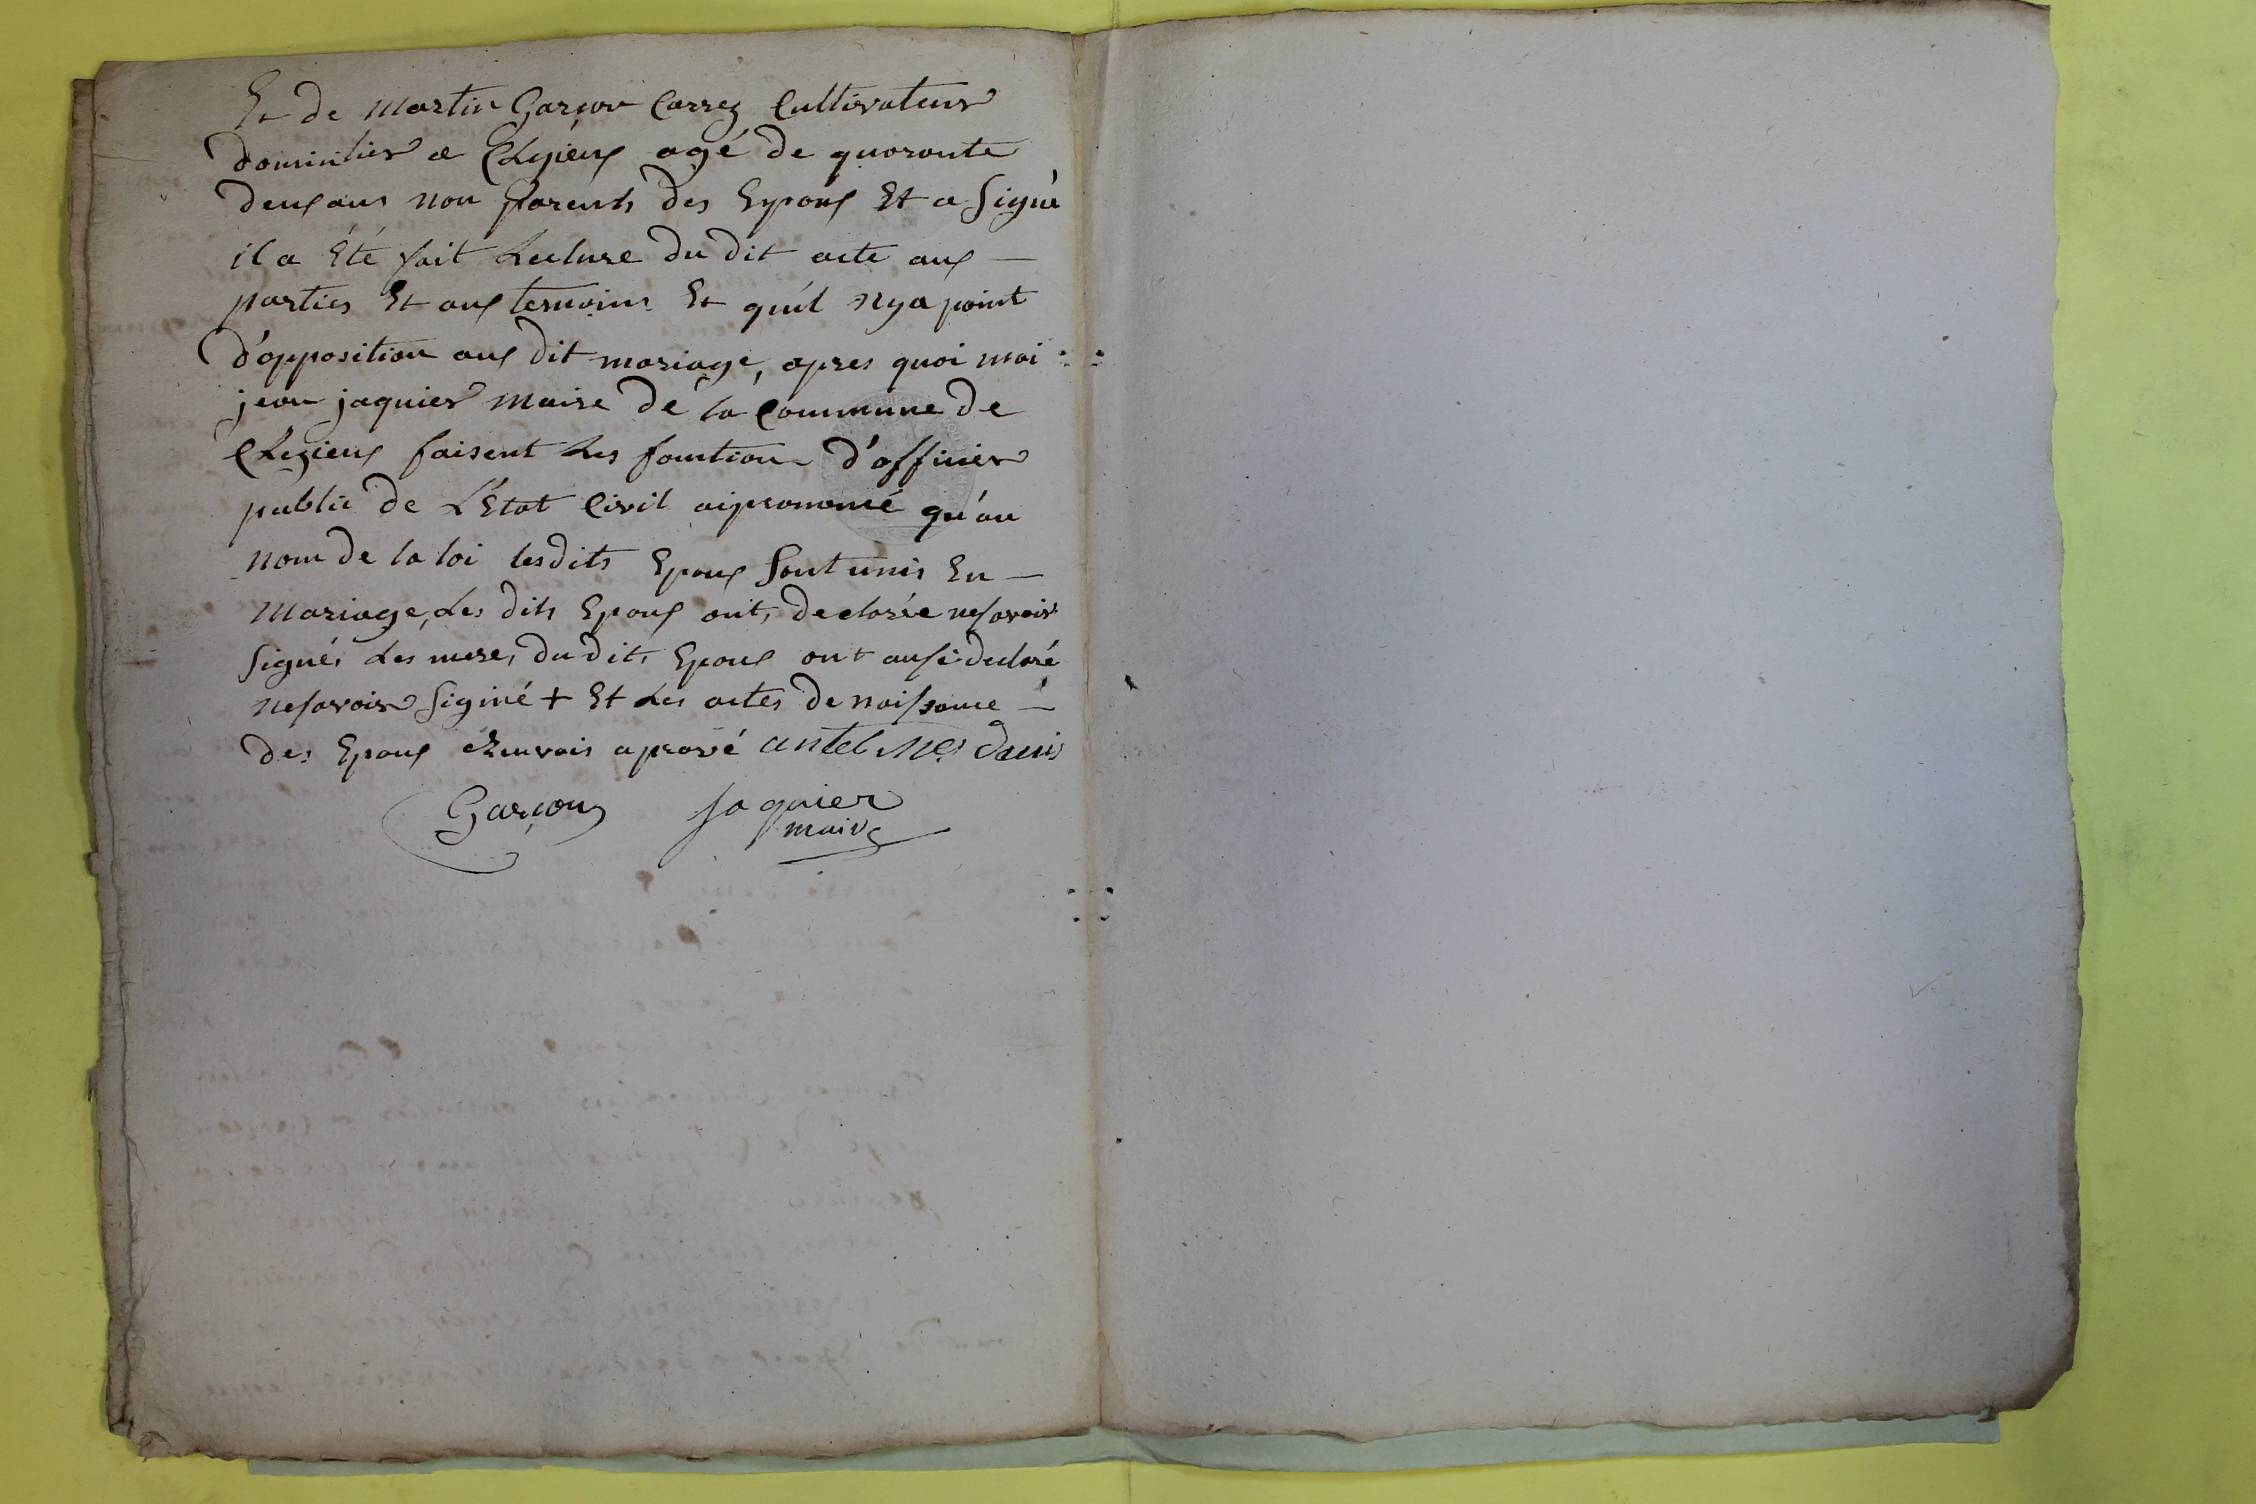 Et de Martin Garçon Carrez Cultivateur
domicilier a Chezieux agé de quarante
deux ans non parents des Epoux Et a signé
il a été fait Lecture du dit acte aux —
parties Et aux temoins Et qu'il n'ya point
d'opposition aux dit mariage, apres quoi moi
jean jaquier maire de la Commune de
faisent les fonction d'officier
public de L'Etat Civil ai prononcé qu'au
nom de la loi lesdits Epoux sont unis En —
Mariage, Les dits Epoux ont, declarée ne savoir
signés Les mere, du dits Epoux ont aussi declaré
ne savoir signué + Et Les actes de naissance —
des Epoux aprové antelmes Danis
Garçon jaquier
maire